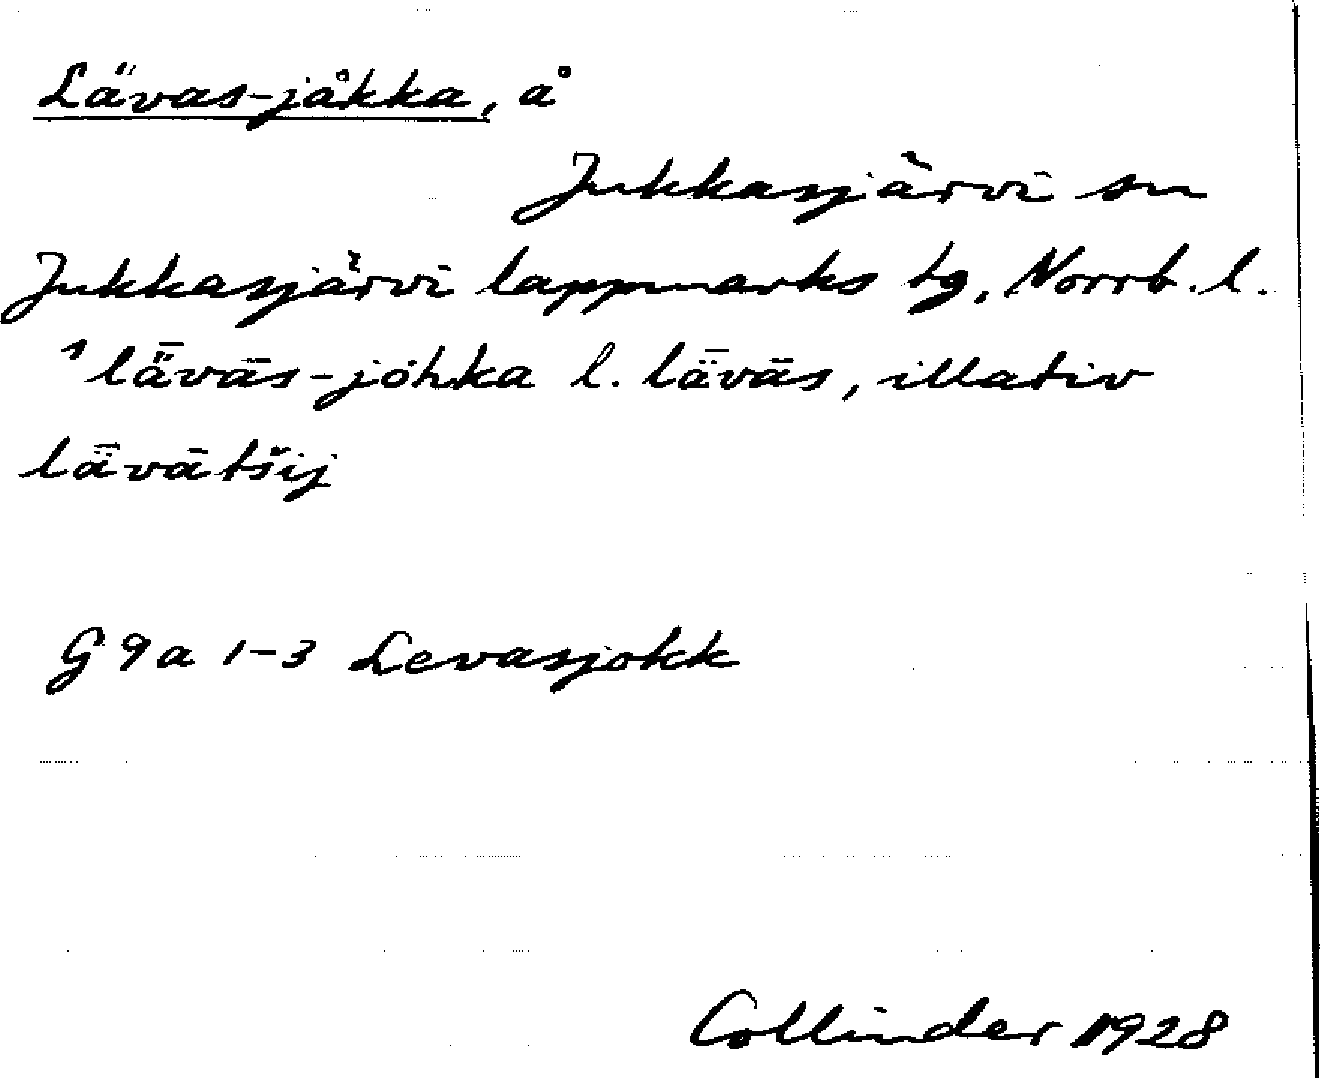 Lävas-jåkka, å
Jukkasjärvi sn
Jukkasjärvi lappmarks tg, Norrb. l.
¹ lǟvās-jöhka l. lǟvās, illativ
lǟvātšij
G 9 a 1-3 Levasjokk
Collinder 1928